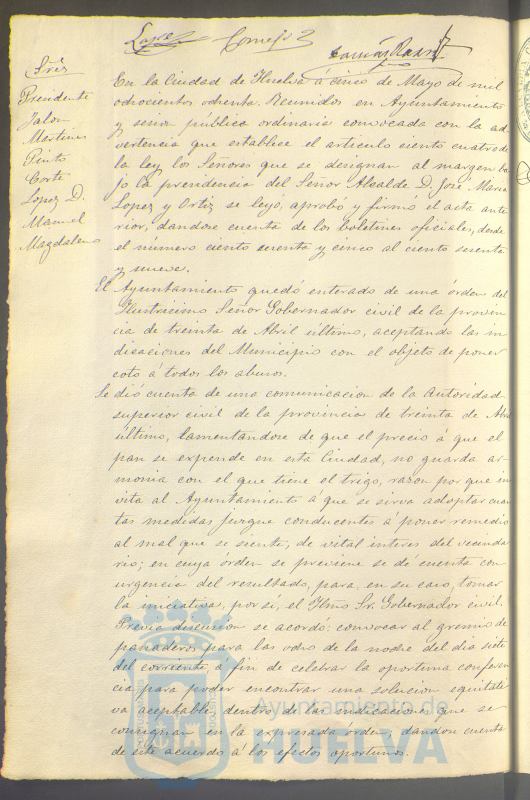 Lopez Cornejo
Sres
Presidente
Jalon
Martinez
Pinto
Corte
Lopez D.
Manuel
Magdaleno
En la Ciudad de Huelva á cinco de Mayo de mil
ochocientos ochenta. Reunidos en Ayuntamiento
y sesion pública ordinaria convocada con la ad-
vertencia que establece el articulo ciento cuatro de
la ley los Señores que se designan al margen ba-
jo la presidencia del Señor Alcalde D. José Maria
Lopez y Ortiz se leyó, aprobó y firmó el acta ante-
rior, dandose cuenta de los boletines oficiales, desde
el número ciento sesenta y cinco al ciento sesenta
y nueve.
El Ayuntamiento quedó enterado de una órden del
Ilustrisimo Señor Gobernador civil de la provin-
cia de treinta de Abril último, aceptando las in-
dicaciones del Municipio con el objeto de poner
coto á todos los abusos.
Se dió cuenta de una comunicacion de la Autoridad
superior civil de la provincia de treinta de Abril
último, lamentandose de que el precio á que el
pan se expende en esta Ciudad, no guarda ar-
monia con el que tiene el trigo, razon por que in-
vita al Ayuntamiento á que se sirva adoptar cuan-
tas medidas juzgue conducentes á poner remedio
al mal que se siente, de vital interes del vecinda-
rio; en cuya órden se previene se dé cuenta con
urgencia del resultado, para, en su caso, tomar
la iniciativa, por si, el Iltmo Sr. Gobernador civil.
Prévia discusion se acordó: convocar al gremio de
panaderos para las ocho de la noche del dia siete
del corriente á fin de celebrar la oportuna conferen-
cia para poder encontrar una solucion equitati-
va aceptable dentro de las indicaciones que se
consignan en la expresada órden, dandose cuenta
de este acuerdo á los efectos oportunos.
Ayuntamiento de
HUELVA